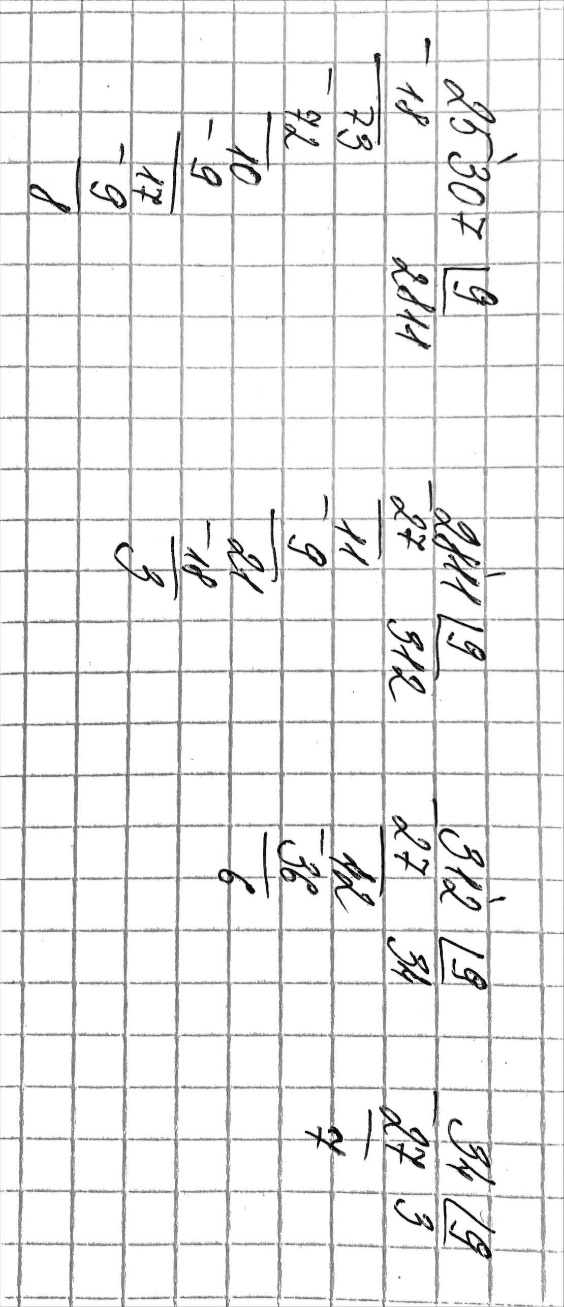 25307 | 9
- 18 2811
73
- 72
10
- 9
17
- 9
8
- 2811 | 9
27 312
11
- 9
21
- 18
3
- 312 | 9
27 34
42
- 36
6
- 34 | 9
27 3
7